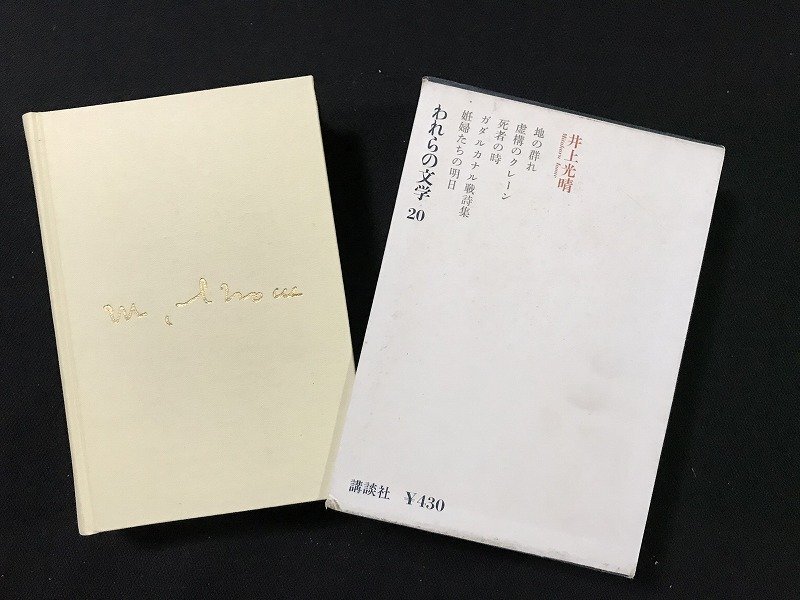 井上光晴
Mitsuharu Inoue
地の群れ
虚構のクレーン
死者の時
ガダルカナル戦詩集
妊婦たちの明日
われらの文学 20
講談社 ¥430